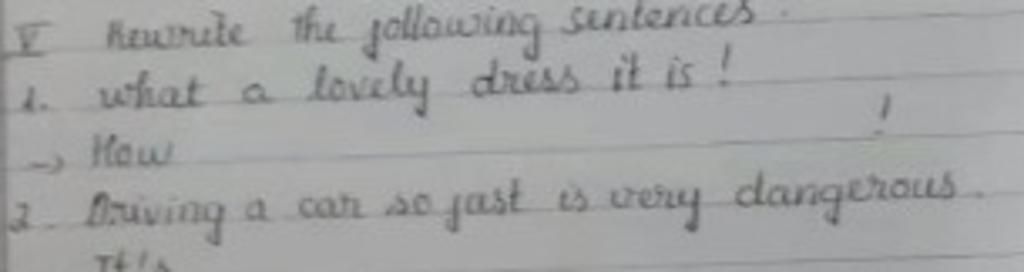 V Rewrite the following sentences.
1. what a lovely dress it is !
→ How !
2. Driving a car so fast is very dangerous.
It's